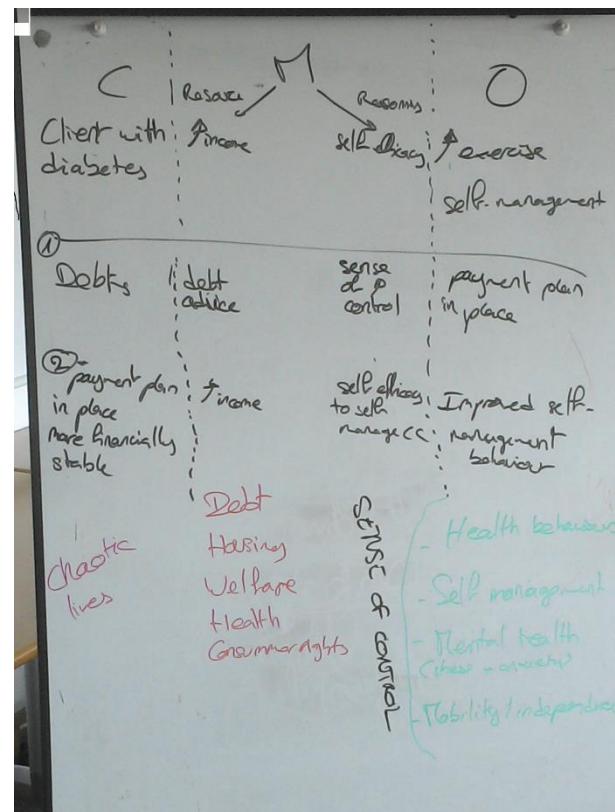 C
M
O
Resource
Reasoning
Client with
diabetes
↑ income
self efficacy
↑ exercise
self-management
①
Debts
debt
advice
sense
of
control
payment plan
in place
②
payment plan
in place
more financially
stable
↑ income
self efficacy
to self
manage CC
Improved self-
management
behaviour
chaotic
lives
Debt
Housing
Welfare
Health
Consummer rights
SENSE OF CONTROL
- Health behaviours
- Self management
- Mental health
(stress - anxiety)
- Mobility / independence